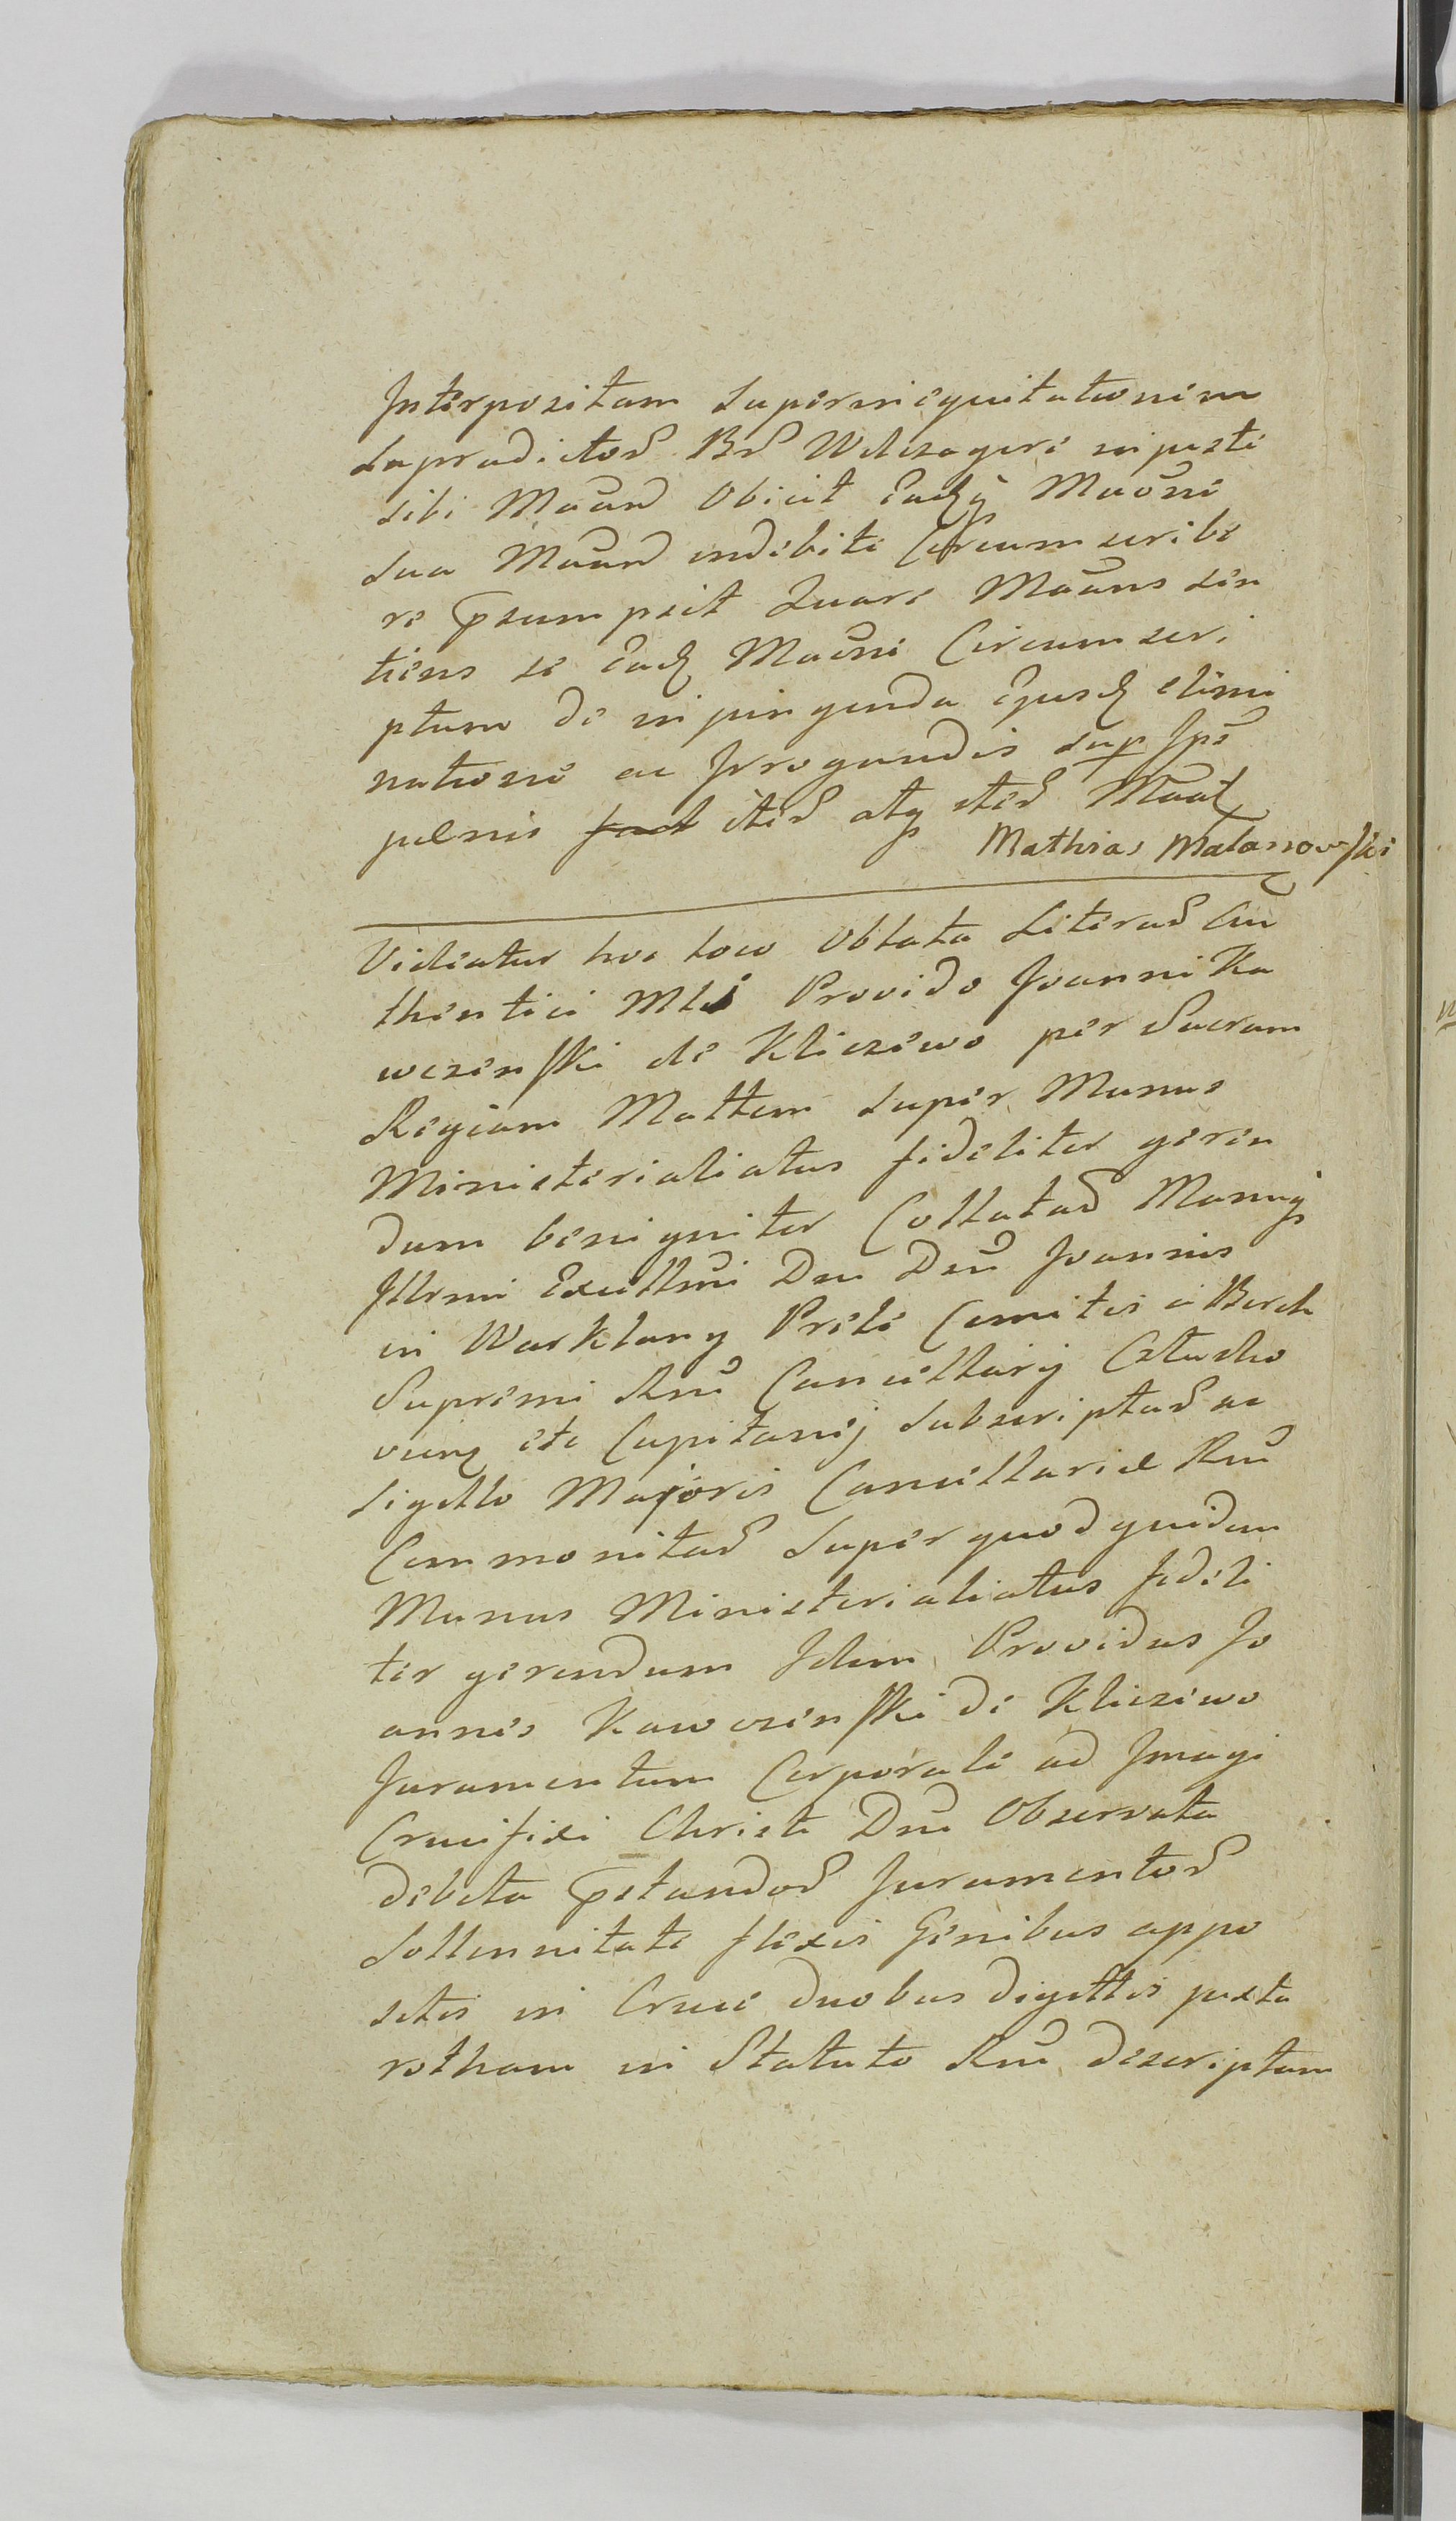 Interpositam superinequitationem
supradictos Bs Wdczagere injuste
sibi Maān Obiicit Eadq̄ Maōne
sua Maān indebite Circumscribe
re p̄sumpsit Quare Maāns sen
tiens se Eadq Maōne Circumscri
ptum de inpingenda Ejusdq elimi
natione ac Irrogandis sup Ipō
paenis fact ited atq sted Maat
Mathias Malanowski
Videatur hoc loco Oblata Literad Au
thentici Mli Provido Joanni Ka
wczenski de Kliczewo per Sacram
Regiam Mattem super Munus
Ministerialiatus fideliter geren
dum benigniter Collatad Manuq
Illrmi Excllmi Dni Dni Joannis
in Warklany Prele Comitis a Borch
Supremi Rni Cancellarij Cztucho
vien etc Capitanej subscriptad ac
sigillo Majoris Cancellariae Rni
Communitad super quod quidem
Munus Ministerialiatus fideli
ter gerendum Idem Providus Jo
annes Kawczenski de Kliczewo
Juramentum Corporale ad Imagi
Crucifixi Christi Dni Observata
debita p̄standod Juramentod
Sollennitate flexis Genibus appo
sitis in Cruce duobus digittis juxta
rotham in Statuto Rni descriptam